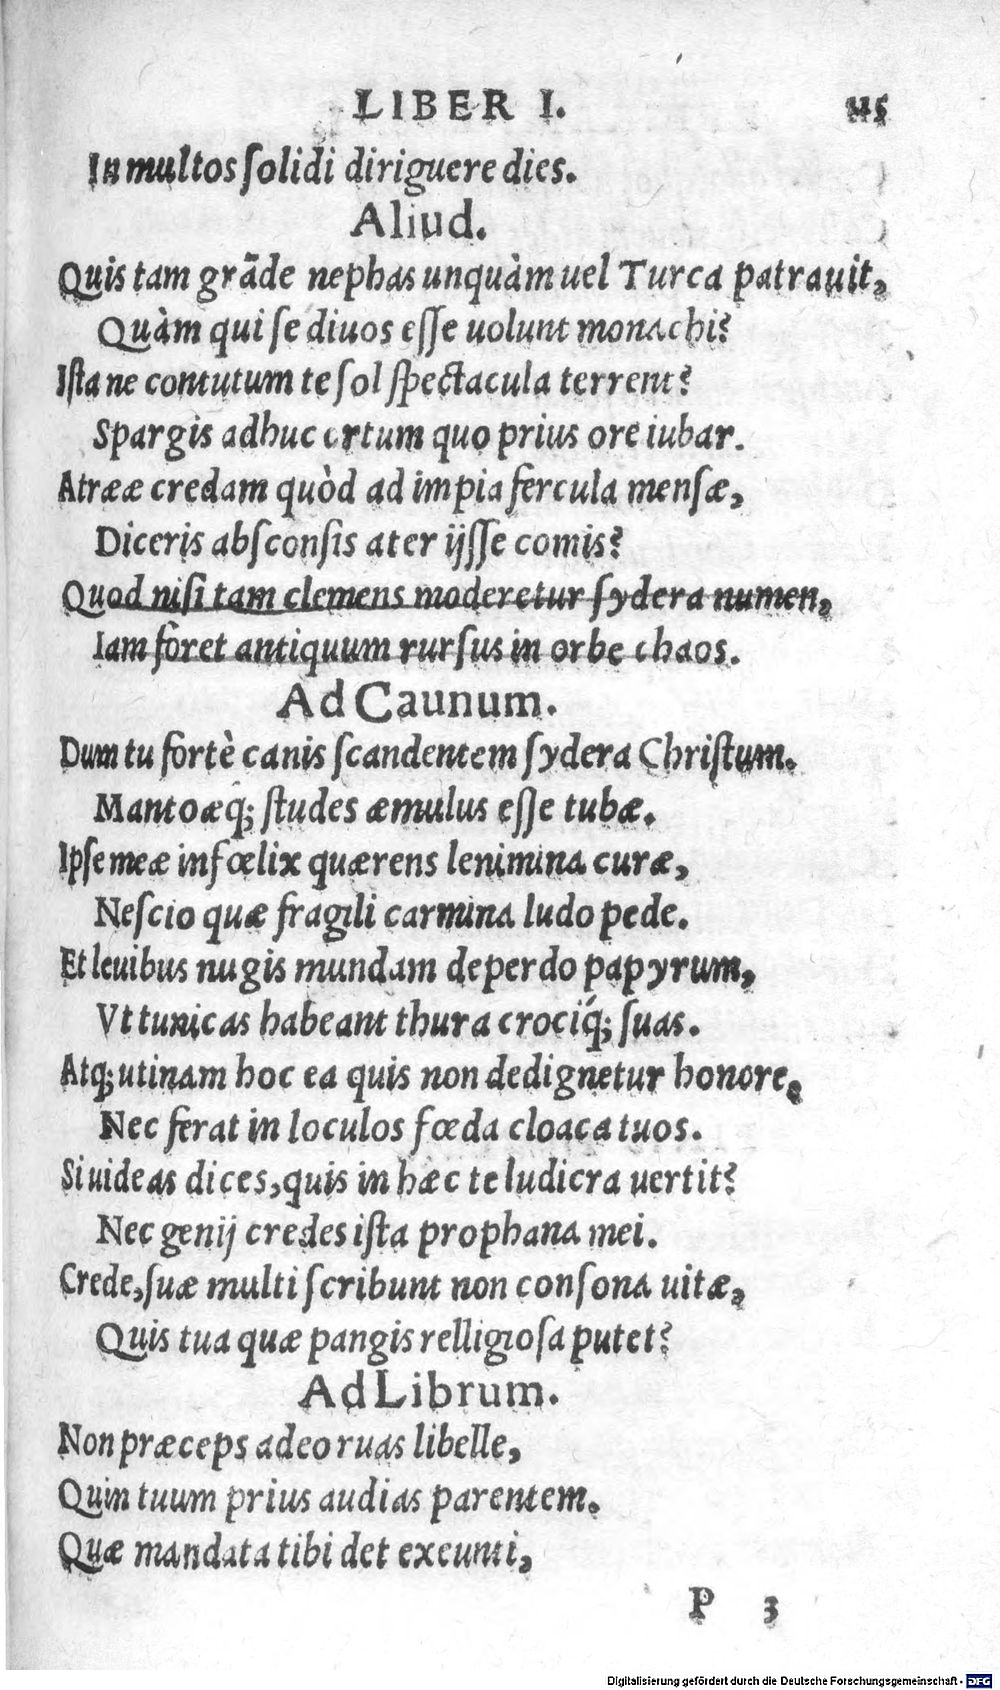 LIBER I. 115
In multos ſolidi diriguere dies.
Aliud.
Quis tam grãde nephas unquàm uel Turca patrauit,
Quàm qui ſe diuos eſſe uolunt monachi?
Iſta ne contutum te ſol ſpectacula terrent?
Spargis adhuc ortum quo prius ore iubar.
Atrææ credam quòd ad impia fercula menſæ,
Diceris abſconſis ater ijſſe comis?
Quod niſi tam clemens moderetur ſydera numen,
Iam foret antiquum rurſus in orbe chaos.
Ad Caunum.
Dum tu fortè canis ſcandentem ſydera Chriſtum.
Mantoæq; ſtudes æmulus eſſe tubæ.
Ipſe meæ infœlix quærens lenimina curæ,
Neſcio quæ fragili carmina ludo pede.
Et leuibus nugis mundam deperdo papyrum,
Vt tunicas habeant thura crociq́; ſuas.
Atq; utinam hoc ea quis non dedignetur honore,
Nec ferat in loculos fœda cloaca tuos.
Si uideas dices, quis in hæc te ludicra uertit?
Nec genij credes iſta prophana mei.
Crede, ſuæ multi ſcribunt non conſona uitæ,
Quis tua quæ pangis relligioſa putet?
Ad Librum.
Non præceps adeo ruas libelle,
Quin tuum prius audias parentem.
Quæ mandata tibi det exeunti,
P 3
Digitalisierung gefördert durch die Deutsche Forschungsgemeinschaft - DFG